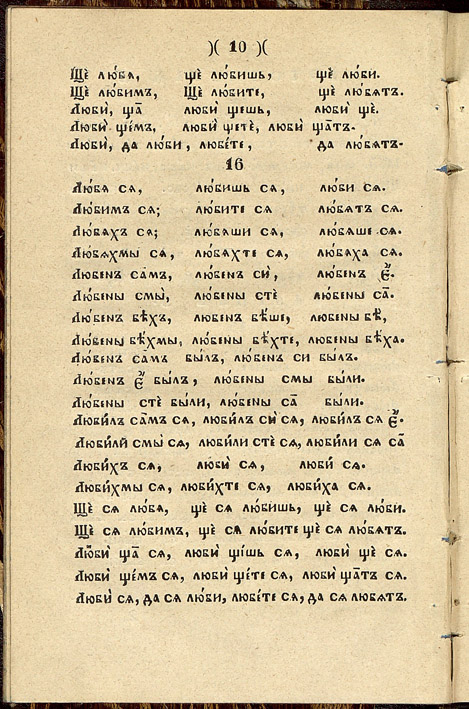 )( 10 )(
Щѐ лю́бѧ, щѐ лю́бишь, щѐ лю́би.
Щѐ лю́бимъ, Щѐ лю́бите, щѐ лю́бѧтъ.
Люби̇̀, ща̄ люби̇̀ щешь, люби̇̀ щѐ.
Люби̇̀ ще́мъ, люби̇̀ щетѐ, люби̇̀ ща̄тъ.
Люби̇̀, да лю́би, любе́те, да лю́бѧтъ.
16
Лю́бѧ сѧ, лю́бишь сѧ, лю́би сѧ.
Лю́бимъ сѧ; лю́бите сѧ лю́бѧтъ сѧ.
Лю́бѧхъ сѧ; лю́бѧши сѧ, лю́бѧше сѧ.
Лю́бѧхмы сѧ, лю́бѧхте сѧ, лю́бѧха сѧ.
Лю́бенъ са́мъ, лю́бенъ си̇̀, лю́бенъ є҆̀.
Лю́бены смы̀, лю́бены стѐ лю́бены са̄.
Лю́бенъ бѣ́хъ, лю́бенъ бѣ́ше, лю́бены бѣ̀,
Лю́бены бѣ́хмы, лю́бены бѣ́хте, лю́бены бѣ́ха.
Лю́бенъ са́мъ бы́лъ, лю́бенъ си бы́лъ.
Лю́бенъ є҆̀ бы́лъ, лю́бены смы бы́ли.
Лю́бены стѐ бы́ли, лю́бены са̄ бы́ли.
Люби́лъ са́мъ сѧ, люби́лъ си̇̀ сѧ, люби́лъ сѧ є҆̀.
Люби́ли смы̀ сѧ, люби́ли стѐ сѧ, люби́ли сѧ са̄
Люби́хъ сѧ, люби̇̀ сѧ, люби̇̀ сѧ.
Люби́хмы сѧ, люби́хте сѧ, люби́ха сѧ.
Щѐ сѧ лю́бѧ, щѐ сѧ лю́бишь, щѐ сѧ лю́би.
Щѐ сѧ лю́бимъ, щѐ сѧ лю́бите щѐ сѧ лю́бѧтъ.
Люби̇̀ ща̄ сѧ, люби̇̀ щі́шь сѧ, люби̇̀ щѐ сѧ.
Люби̇̀ ще́мъ сѧ, люби̇̀ ще́те сѧ, люби̇̀ ща̄тъ сѧ.
Люби̇̀ сѧ, да сѧ лю́би, любе́те сѧ, да сѧ лю́бѧтъ.